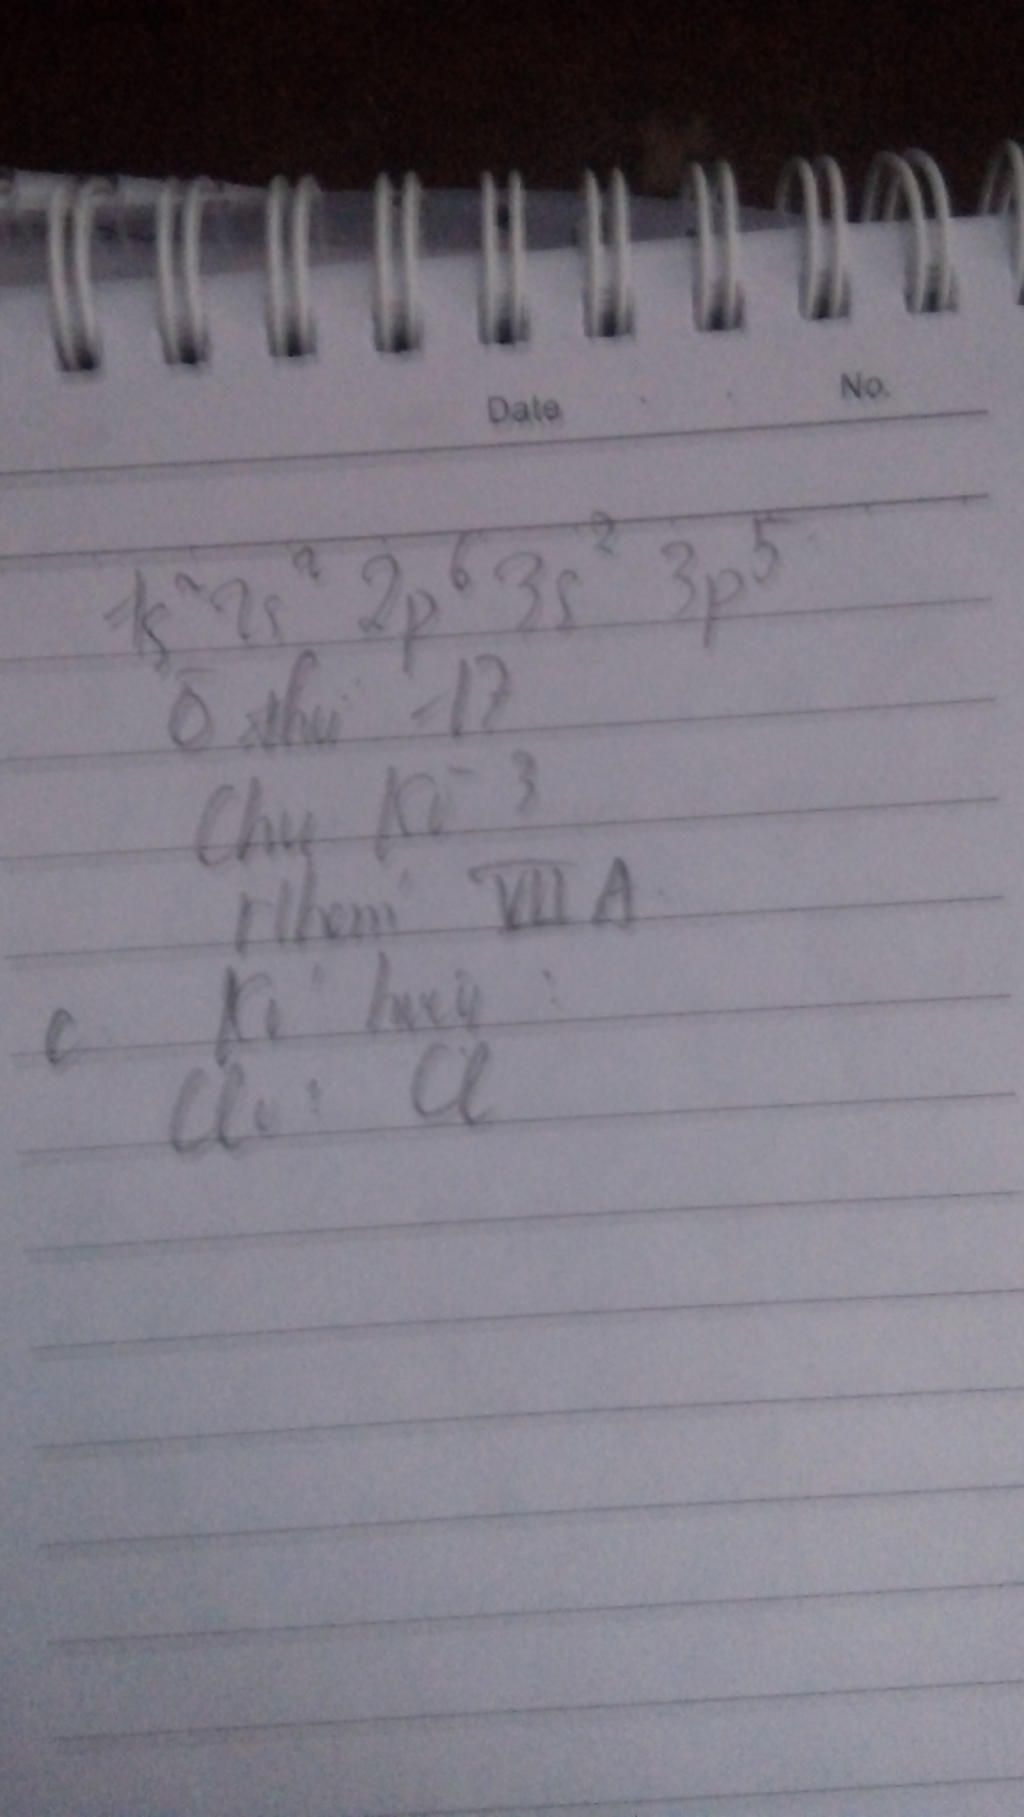 Date No.
1s² 2s² 2p⁶ 3s² 3p⁵
Ô thứ 17
Chu Kì 3
Nhóm VII A
c Kí hiệu :
Clo : Cl